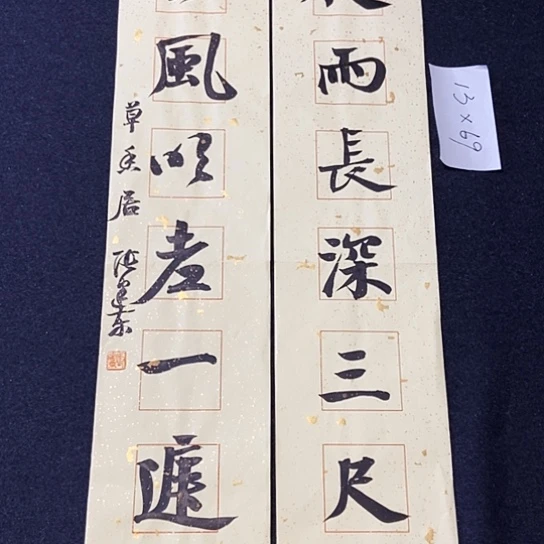 雨長深三尺
風吹老一遞
草香居
13×69